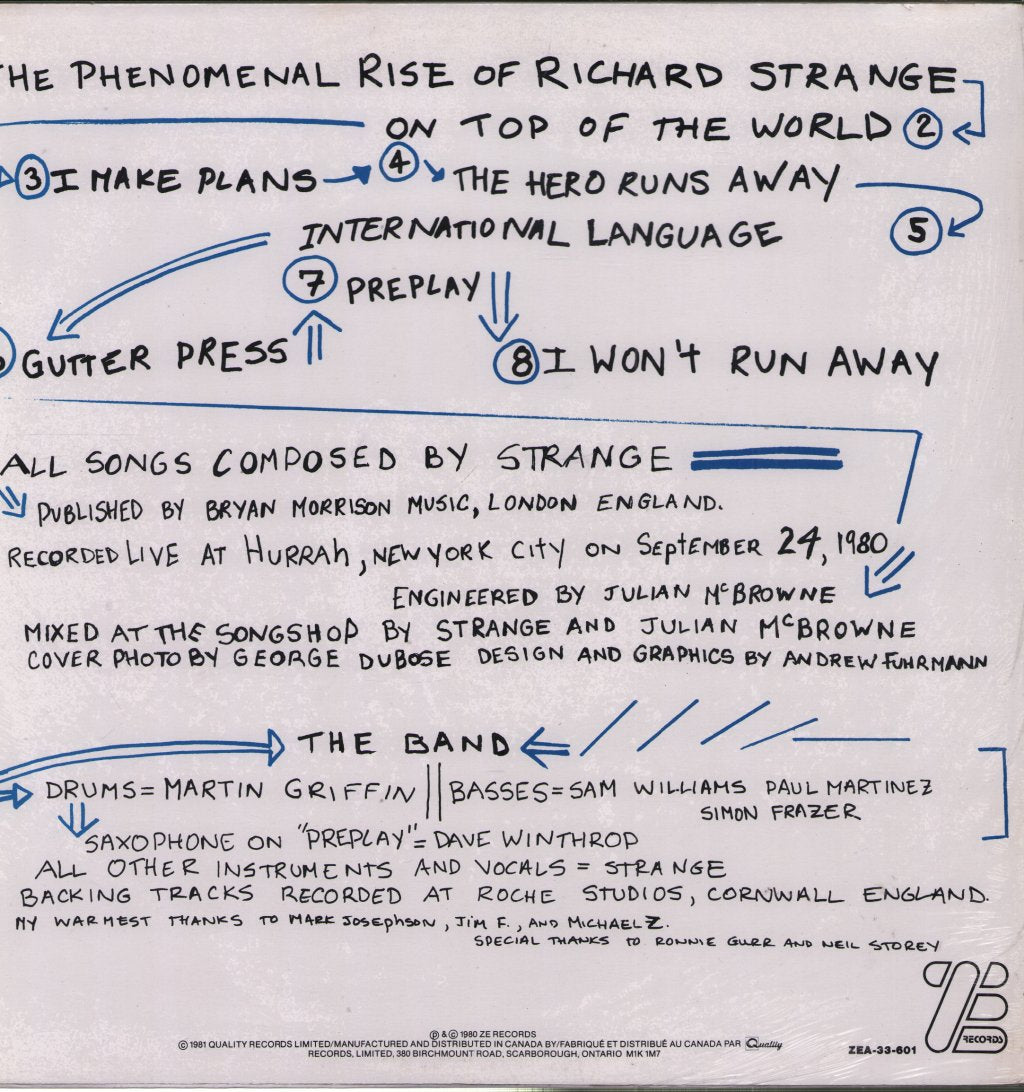 THE PHENOMENAL RISE OF RICHARD STRANGE
ON TOP OF THE WORLD 2
3 I MAKE PLANS 4 THE HERO RUNS AWAY
INTERNATIONAL LANGUAGE 5
7 PREPLAY
GUTTER PRESS
8 I WON't RUN AWAY
ALL SONGS COMPOSED BY STRANGE
PUBLISHED BY BRYAN MORRISON MUSIC, LONDON ENGLAND.
RECORDED LIVE AT HURRAh, NEW YORK CITY ON SEPTEMBER 24, 1980
ENGINEERED BY JULIAN McBROWNE
MIXED AT THE SONGSHOP BY STRANGE AND JULIAN McBROWNE
COVER PHOTO BY GEORGE DUBOSE DESIGN AND GRAPHICS BY ANDREW FUHRMANN
THE BAND
DRUMS = MARTIN GRIFFIN || BASSES = SAM WILLIAMS PAUL MARTINEZ
SIMON FRAZER
SAXOPHONE ON "PREPLAY" = DAVE WINTHROP
ALL OTHER INSTRUMENTS AND VOCALS = STRANGE
BACKING TRACKS RECORDED AT ROCHE STUDIOS, CORNWALL ENGLAND.
MY WARMEST THANKS TO MARK JOSEPHSON, JIM F., AND MICHAEL Z.
SPECIAL THANKS TO RONNIE GURR AND NEIL STOREY
RECORDS
℗ & © 1980 ZE RECORDS
© 1981 QUALITY RECORDS LIMITED/MANUFACTURED AND DISTRIBUTED IN CANADA BY/FABRIQUÉ ET DISTRIBUÉ AU CANADA PAR Quality
RECORDS, LIMITED, 380 BIRCHMOUNT ROAD, SCARBOROUGH, ONTARIO M1K 1M7
ZEA-33-601